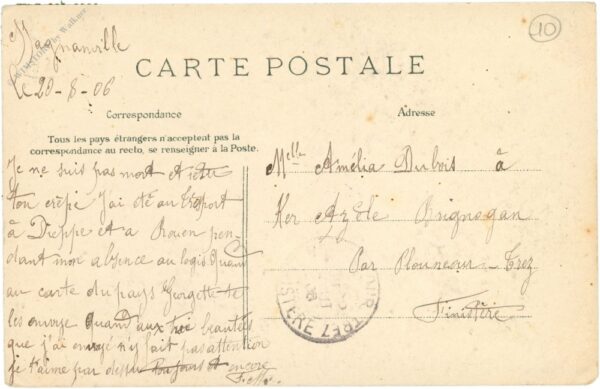 Magnanville
le 20-8-06
10
CARTE POSTALE
Correspondance
Adresse
Tous les pays étrangers n'acceptent pas la
correspondance au recto, se renseigner à la Poste.
Je ne suis pas mort et jette
ton crêpe J'ai été au Tréport
à Dieppe et a Rouen pen-
dant mon absence au logis Quand
au carte du pays Georgette te
les envoye Quand aux
que j'ai envoyé n'y fait pas attention
je t'aime par toujours et encore
Melle Amélia Dubois à
Ker Azèle Brignogan
Par Plouneour-Trez
Finistère
TREZ
FINISTERE